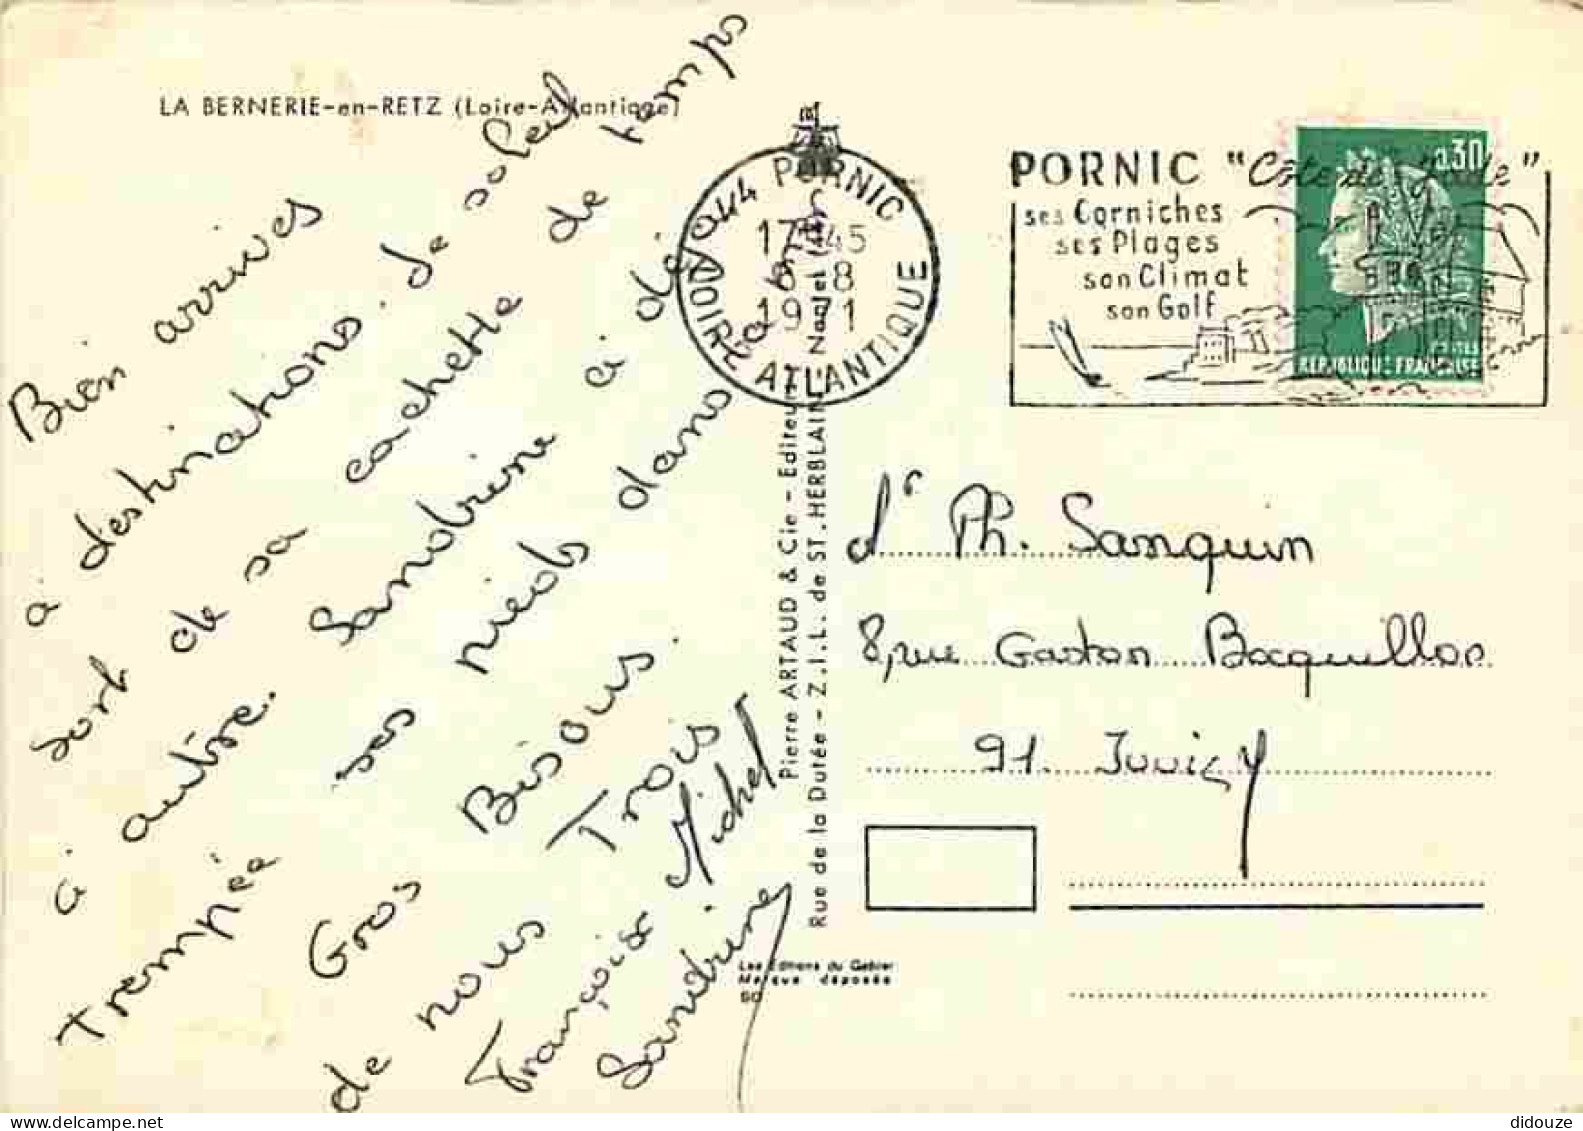 LA BERNERIE-en-RETZ (Loire-Atlantique)
Bien arrivés
à destinations. Le soleil
sort de sa cachette de temps
à autre. Sandrine a déjà
trempée ses pieds dans la mer
Gros Bisous.
de nous Trois
Françoise Michel
Sandrine
44 PORNIC
17 45
6-8
1971
LOIRE ATLANTIQUE
PORNIC "Côte de Jade"
ses Corniches
ses Plages
son Climat
son Golf
0,30
POSTES
RÉPUBLIQUE FRANÇAISE
Pierre ARTAUD & Cie - Editeurs
Rue de la Dutée - Z.I.L. de ST. HERBLAIN Nantes
dr Ph. Sanquin
8, rue Gaston
91. Juvisy
Les Editions du Gabier
Marque déposée